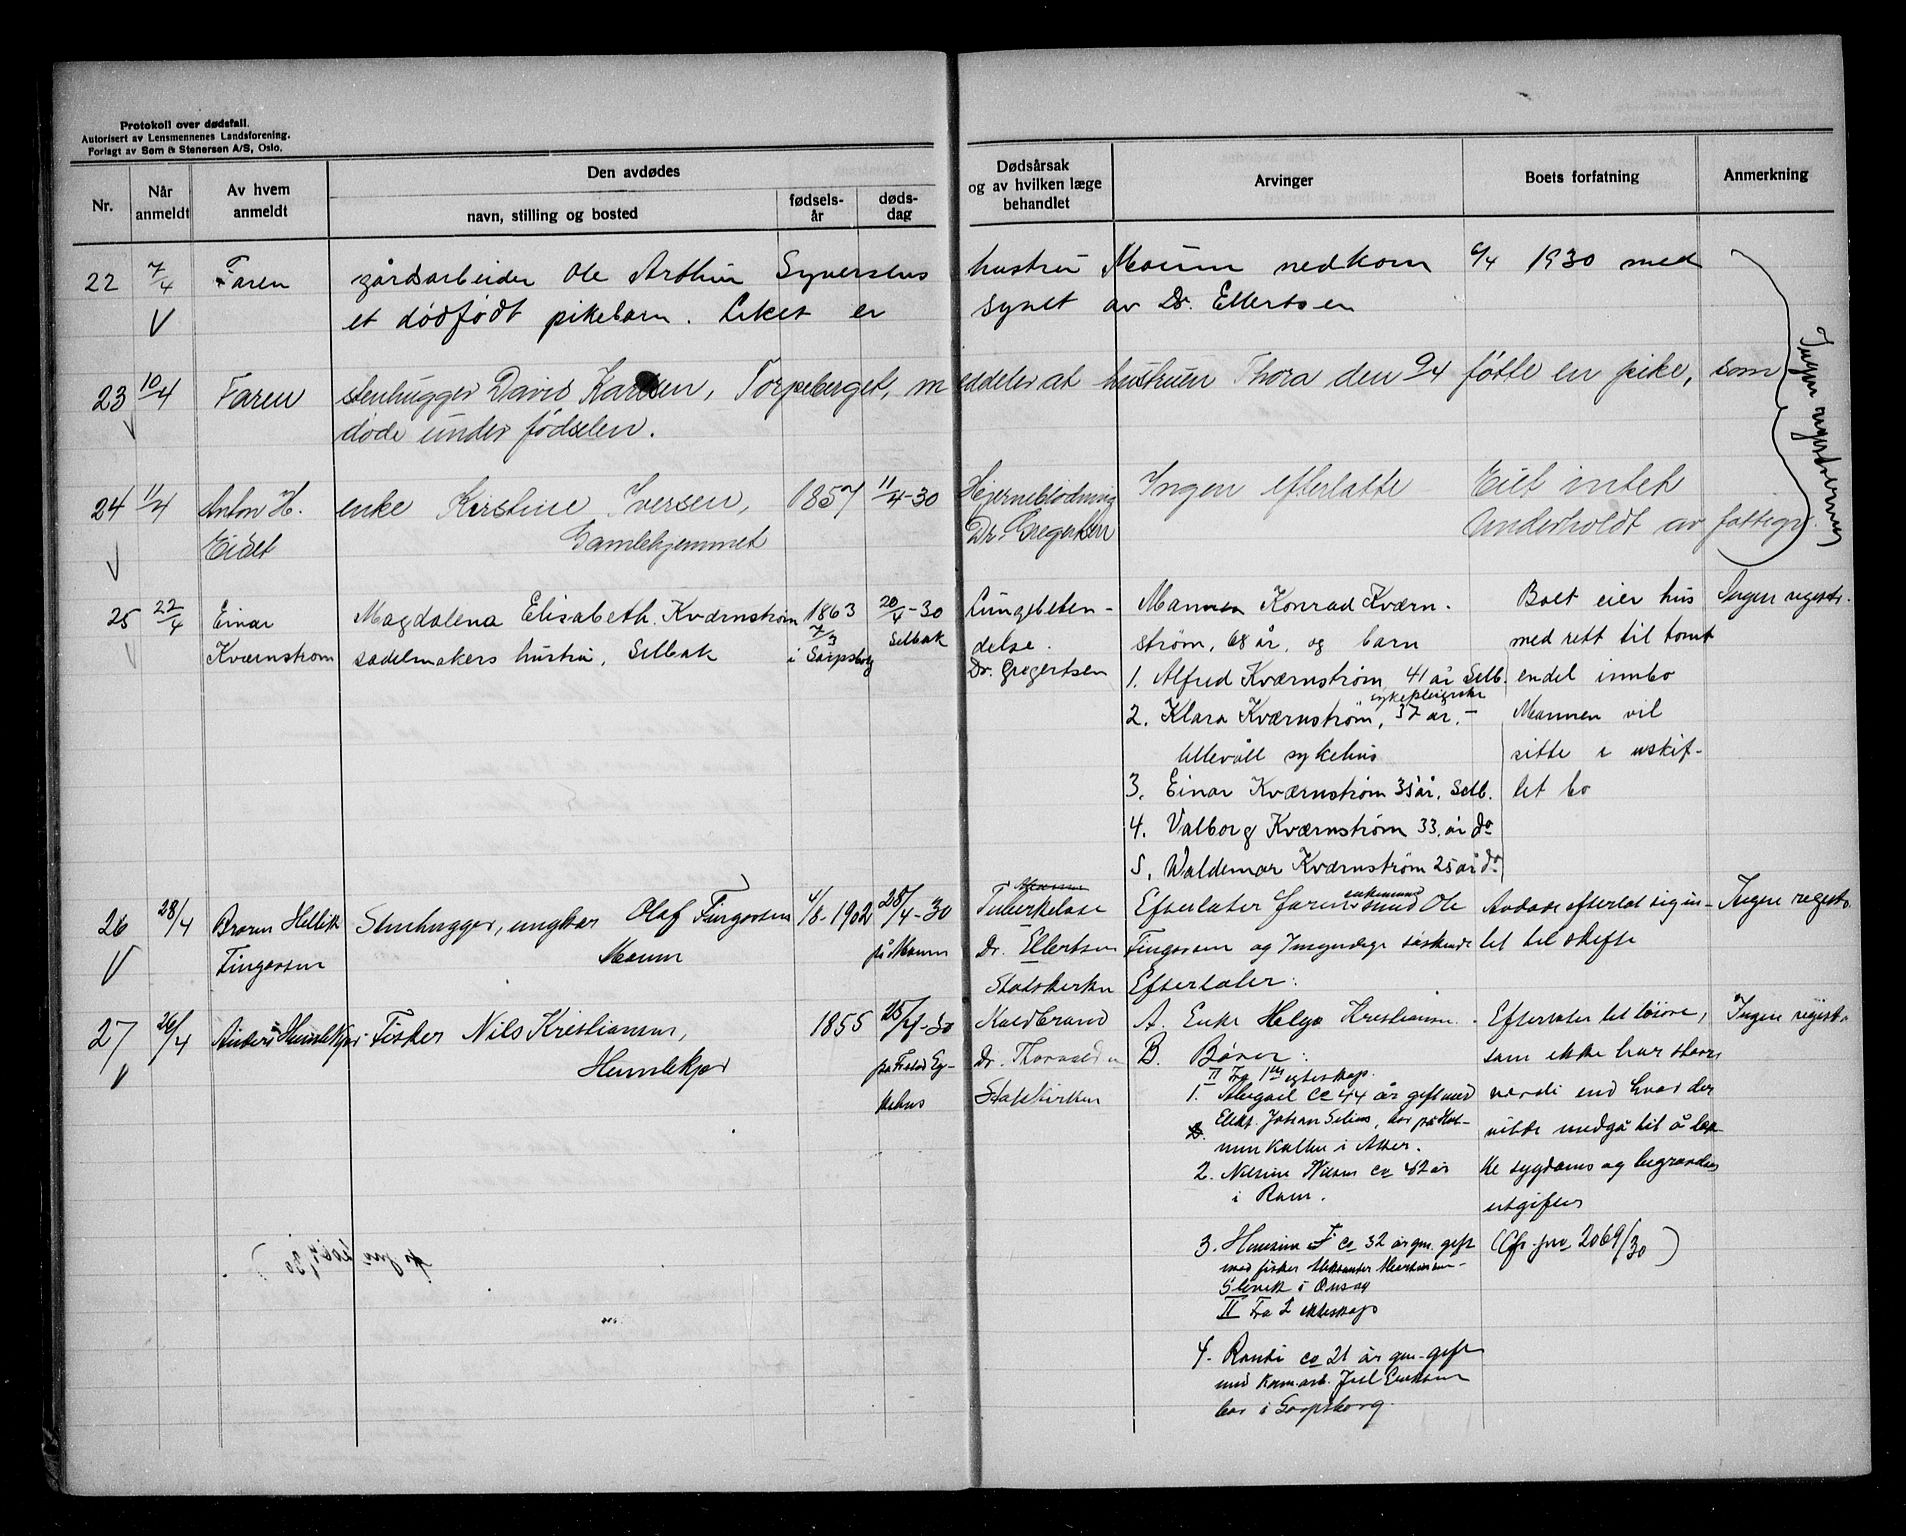 Protokoll over dødsfall.
Autorisert av Lensmennenes Landsforening.
Forlagt av Sem & Stenersen A/S, Oslo.
Nr.
Når anmeldt
Av hvem anmeldt
Den avdødes
navn, stilling og bosted
fødselsår
dødsdag
Dødsårsak
og av hvilken læge
behandlet
Arvinger
Boets forfatning
Anmerkning
22 7/4 Faren gårdsarbeider Ole Arthur Syversens hustru Moum nedkom 6/4 1930 med
et dødfødt pikebarn. Liket er synet av Dr. Ellertsen
23 10/4 Faren stenhugger David Karlsen, Torpeberget, meddeler at hustruen Thora den 9/4 fødte en pike, som
døde under fødselen.
Ingen registrering
24 11/4 Anton H. Eidet
enke Kirstine Iversen,
Gamlehjemmet
1857 11/4-30
Hjerneblødning
Dr. Gregertsen
Ingen efterlatte
Eiet intet
Underholdt av fattigv.
25 22/4 Einar
Kværnstrøm
Magdalena Elisabeth Kværnstrøm
sadelmakers hustru, Selbak
1863
7/3
i Sarpsborg
20/4-30
Selbak
Lungebeten-
delse.
Dr. Gregertsen
Mannen Konrad Kværn-
strøm, 68 år, og barn
1. Alfred Kværnstrøm 41 år Selb.
sykepleierske
2. Klara Kværnstrøm, 37 år. -
Ullevåll sykehus
3. Einar Kværnstrøm 35 år, Selb.
4. Valborg Kværnstrøm 33 år do
5. Waldemar Kværnstrøm 25 år do
Boet eier hus
med rett til tomt
endel innbo
Mannen vil
sitte i uskif-
tet bo
Ingen registr.
26 28/4 Broren Hellik
Fingarsen
Stenhugger, ungkar Olaf Fingarsen
Moum
4/8-1902
28/4-30
på Moum
Tuberkelose
Dr. Ellertsen
Statskirken
Efterlater faren enkemand Ole
Fingarsen og 7 myndige søskende
Avdøde efterlot sig in-
tet til skifte
Ingen registr.
27 26/4 Anders Humlekjær
Fisker Nils Kristiansen,
Humlekjær
1855
25/4-30
på Fr.stad Sy-
kehus
Koldbrand
Dr. Thorvaldsen
Statskirken
Efterlater:
A. Enke Helga Kristiansen.
B. Børn:
I Fra 1ste egteskap.
1. Abigail ca 44 år gift med
Elekt. Johan Selius, bor på Hol-
men Kollen i Asker.
2. Nilsine Nilsen ca 42 år
i Ram.
3. Hansine F ca 32 år gm. gift
med fisker Aleksander Martinsen
Slevik i Onsøy
II Fra 2 ekteskap
4. Randi ca 21 år gm. gift
med Korn.arb. Juel Eriksen
bor i Sarpsborg.
Efterlater litt løsøre,
som ikke har større
verdi end hvad der
vilde medgå til å dæk-
ke sygdoms og begravelses
utgifter
(Cfr. jnr 2069/30)
Ingen registr.